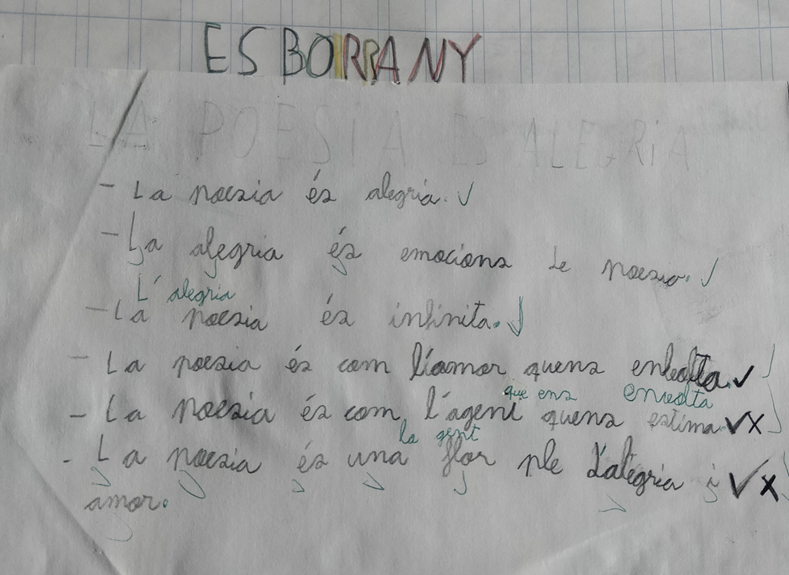 ESBORRANY
LA POESIA ES ALEGRiA
- La poesia és alegria. ✓
- La alegria és emocions de poesia. ✓
L'alegria
- La poesia és infinita. ✓
- La poesia és com l'íamor quens enbolta. ✓
que ens envolta
- La poesia és com l'agent quens estima ✓ X
la gent
- La poesia és una flor ple d'alegria i ✓ X
amor.